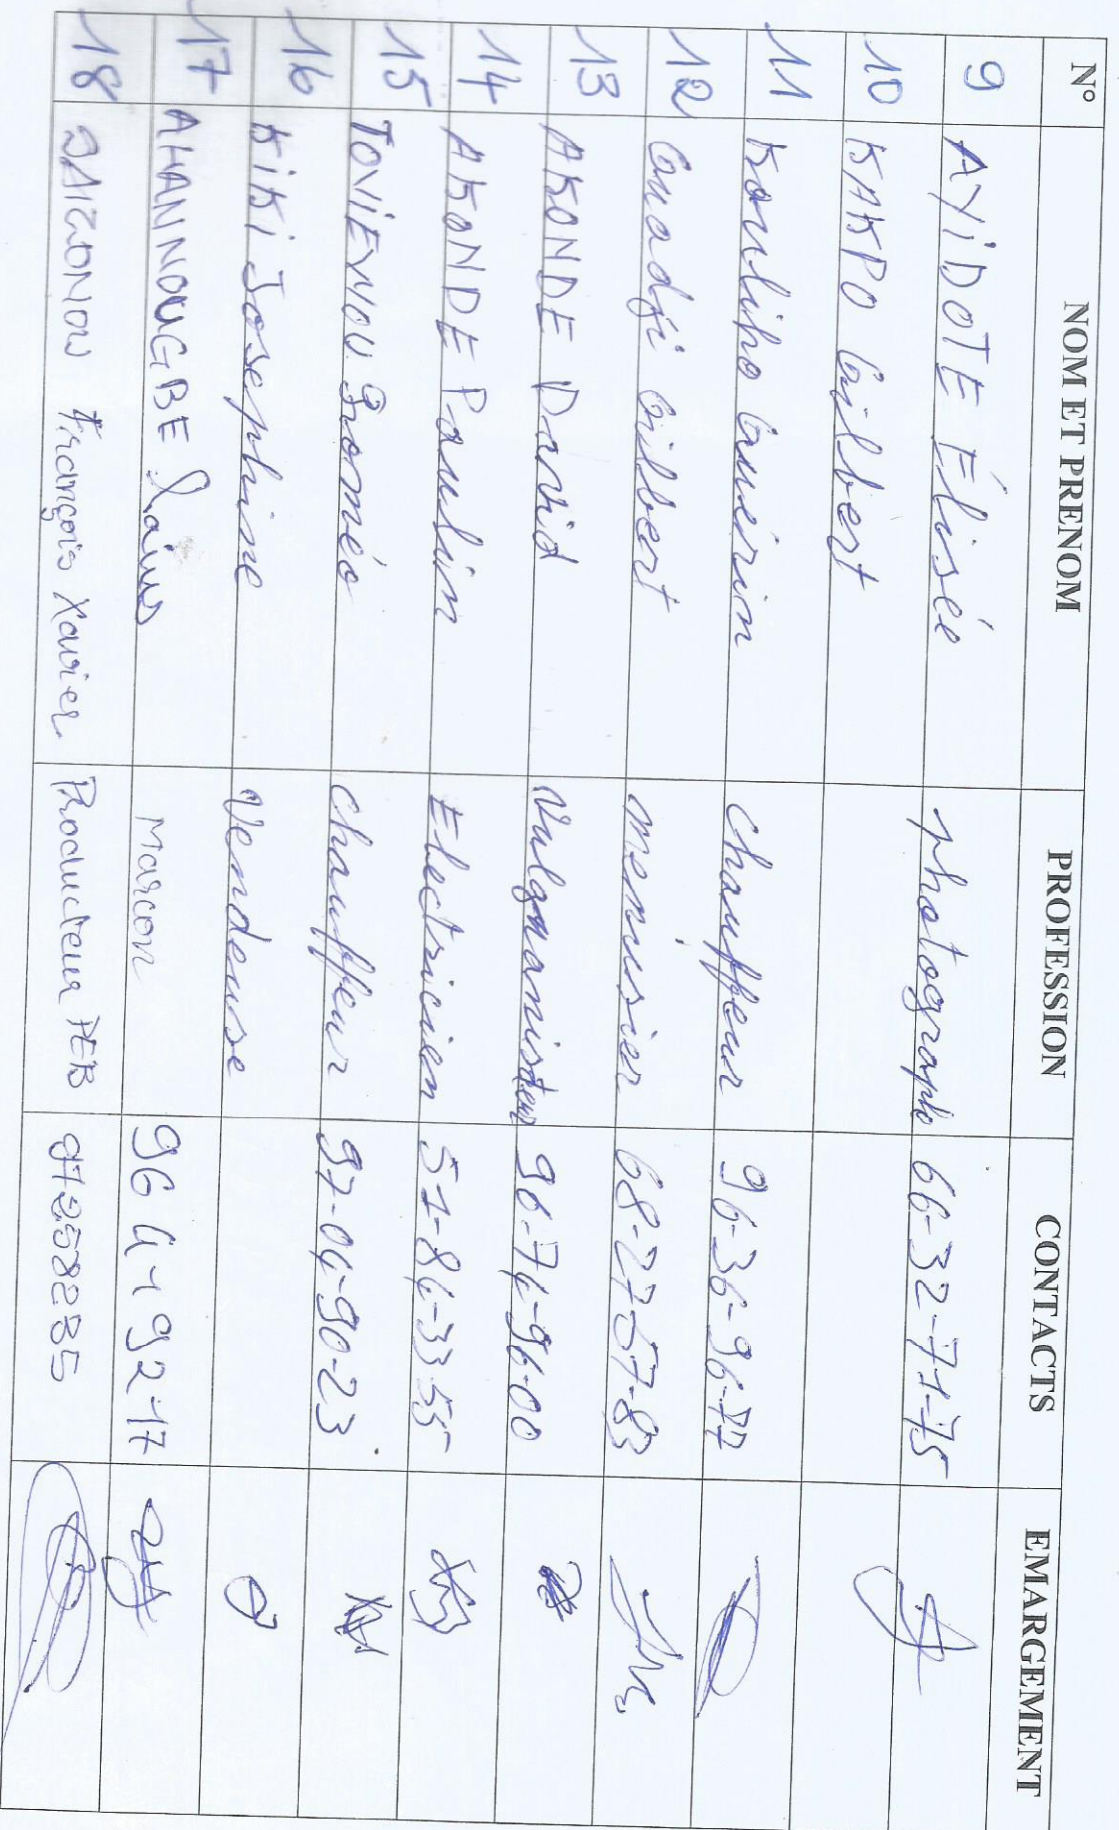 N° NOM ET PRENOM PROFESSION CONTACTS EMARGEMENT
9 AYIDOTE Élisée photographe 66-32-71-75
10 KAKPO Gilbert
11 Kouliho Guérin chauffeur 96-36-96-77
12 Gnadji Gilbert menusier 68-27-57-83
13 AKONDE David 96-74-96-00
14 AKONDE Paulin Electricien 51-84-33-55
15 TOVIENOU Roméo chauffeur 97-04-90-23
16 KIKI Josephine Vendeuse
17 AHANNOUGBE Macon 96 41 92-17
18 François Xavier Producteur 97258285